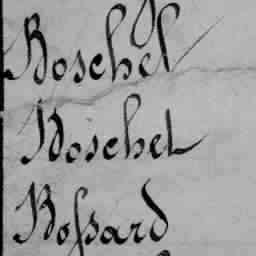 Boschel
Boschet
Boſsard